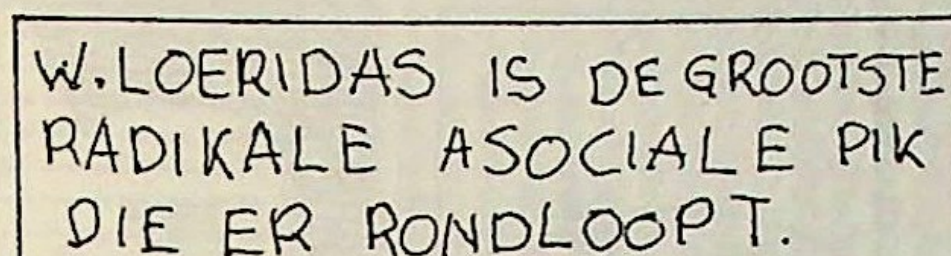 W. LOERIDAS IS DE GROOTSTE
RADIKALE ASOCIALE PIK
DIE ER RONDLOOPT.